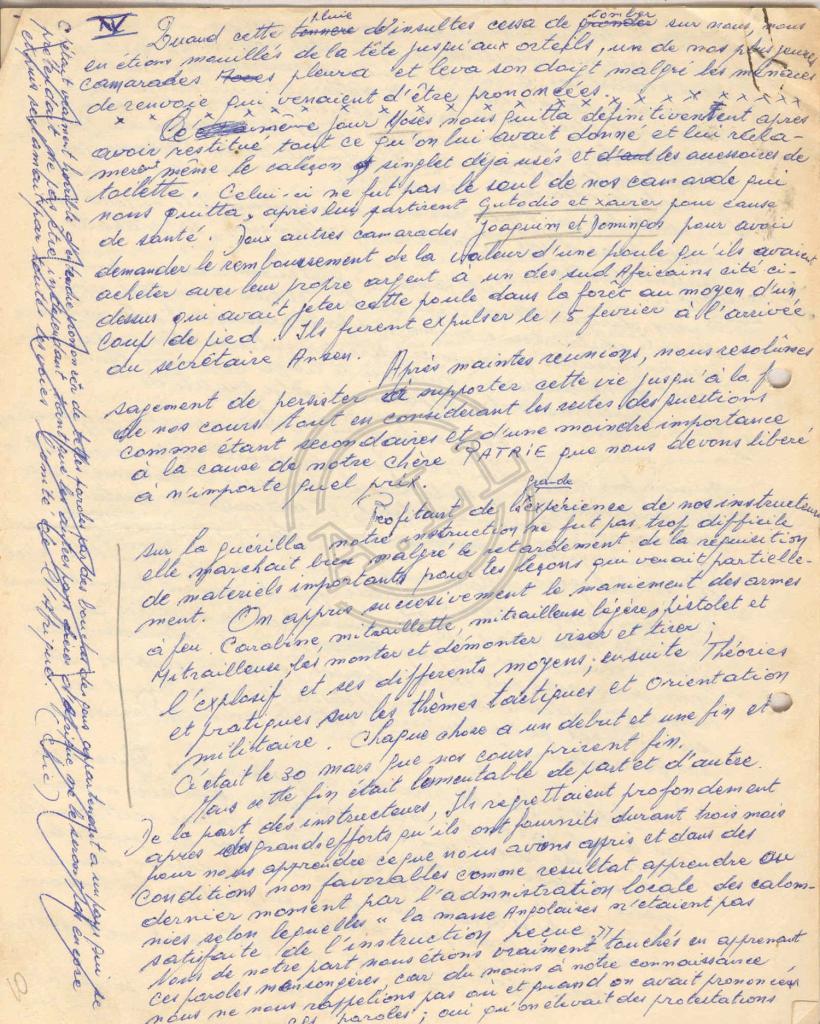 IV
Quand cette pluie d'insultes cessa de tomber sur nous, nous
en étions mouillés de la tête jusqu'aux orteils, un de nos plus jeunes
camarades pleura et leva son doigt malgré les menaces
de renvoie qui venaient d'être prononcées. x x x x x x x x
x x x x x x x x
Ce même jour Mosès nous quitta définitivement après
avoir restitué tout ce qu'on lui avait donné et lui récla-
merent même le caleçon et singlet déja usés et les accessoires de
toilette. Celui-ci ne fut pas le seul de nos camarade qui
nous quitta, après lui partirent et Xavier pour cause
de santé. Deux autres camarades Joaquim et Domingos pour avoir
demander le remboursement de la valeur d'une poule qu'ils avaient
acheter avec leur propre argent à un des sud Africains cité ci-
dessus qui avait jeter cette poule dans la forêt au moyen d'un
coup de pied. Ils furent expulser le 15 février à l'arrivée
du sécrétaire
Après maintes réunions, nous resolûmes
sagement de persister et supporter cette vie jusqu'à la f
de nos cours tout en considerant les restes des questions
comme étant secondaires et d'une moindre importance
à la cause de notre chère PATRIE que nous devons libéré
à n'importe quel prix.
Profitant de la grande expérience de nos instructeurs
sur la guérilla notre instruction ne fut pas trop difficile
elle marchait bien malgré le retardement de la réquisition
de materiels importants pour les leçons qui venait partielle-
ment. On appris succesivement le maniement des armes
à feu. Carabine, mitraillette, mitrailleuse légère, pistolet et
Mitrailleuse, les monter et démonter viser et tirer;
l'explosif et ses differents moyens; ensuite Théories
et pratiques sur les thèmes tactiques et Orientation
militaire. Chaque chose a un debut et une fin et
C'était le 30 mars que nos cours prirent fin.
Mais cette fin était lamentable de part et d'autre.
De la part des instructeurs, Ils regrettaient profondement
après grands efforts qu'ils ont fournits durant trois mois
pour nous apprendre ce que nous avions appris et dans des
conditions non favorables comme resultat apprendre au
dernier moment par l'admnistration locale des calom-
nies selon lequelles "la masse Angolaises n'étaient pas
satisfaite de l'instruction reçue"
Nous de notre part nous étions vraiment touchés en apprenant
ces paroles mensongères, car du moins à notre connaissance
nous ne nous rappelions pas où et quand on avait prononcées
ces paroles; oui qu'on élevait des protestations
C'était vraiment de belles paroles par des bouches de gens appartenant a un pays qui se
pretendait ne pas etre independant tant que les autres pays d'Afrique ne le seront pas encore